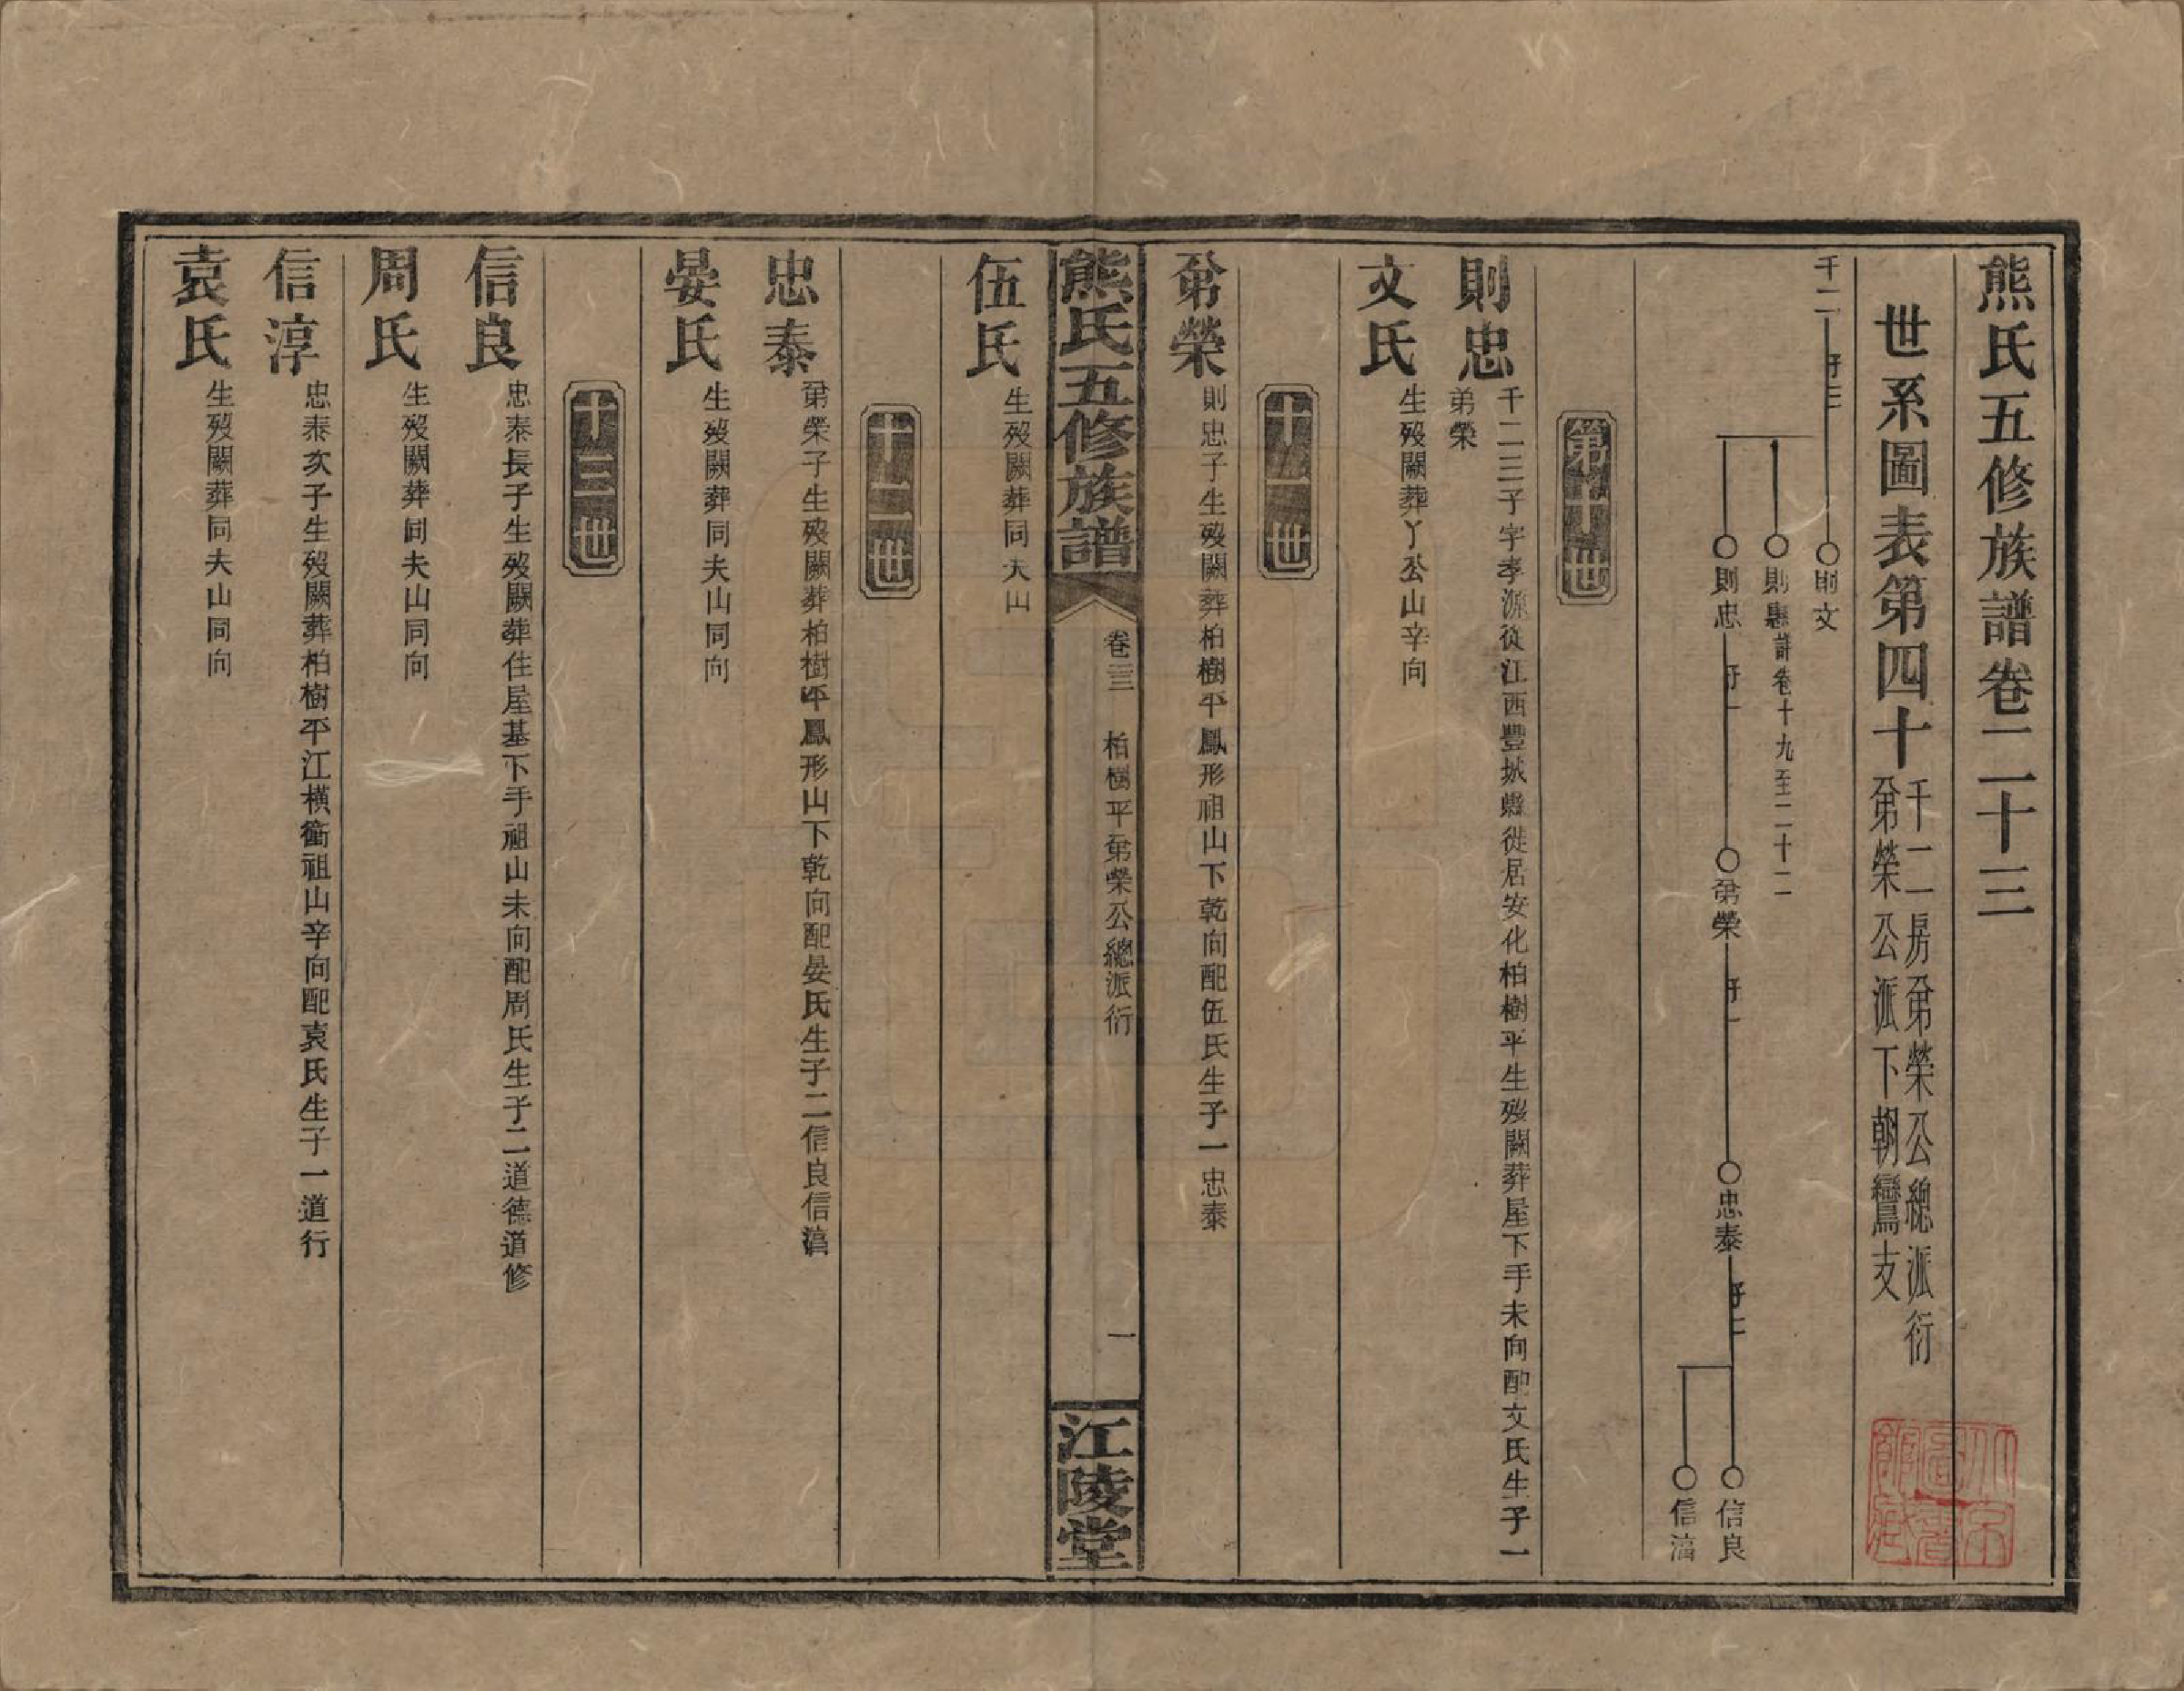 熊氏五修族譜卷二十三
世系圖表第四十
千二房弟榮公總派衍
弟榮公派下朝鸞支
千二
子三
〇則文
〇則惠 詳卷十九至二十二
〇則忠
子一
〇弟榮
子一
〇忠泰
子二
〇信良
〇信淳
第十世
則忠
千二三子字孝源從江西豐城縣徙居安化柏樹平生歿闕葬屋下手未向配文氏生子一
弟榮
文氏
生歿闕葬丫公山辛向
十一世
弟榮
則忠子生歿闕葬柏樹平鳳形祖山下乾向配伍氏生子一忠泰
熊氏五修族譜
卷二三
柏樹平弟榮公總派衍
一
江陵堂
伍氏
生歿闕葬同夫山
十二世
忠泰
弟榮子生歿闕葬柏樹平鳳形山下乾向配晏氏生子二信良信淳
晏氏
生歿闕葬同夫山同向
十三世
信良
忠泰長子生歿闕葬住屋基下手祖山未向配周氏生子二道德道修
周氏
生歿闕葬同夫山同向
信淳
忠泰次子生歿闕葬柏樹平江橫衝祖山辛向配袁氏生子一道行
袁氏
生歿闕葬同夫山同向